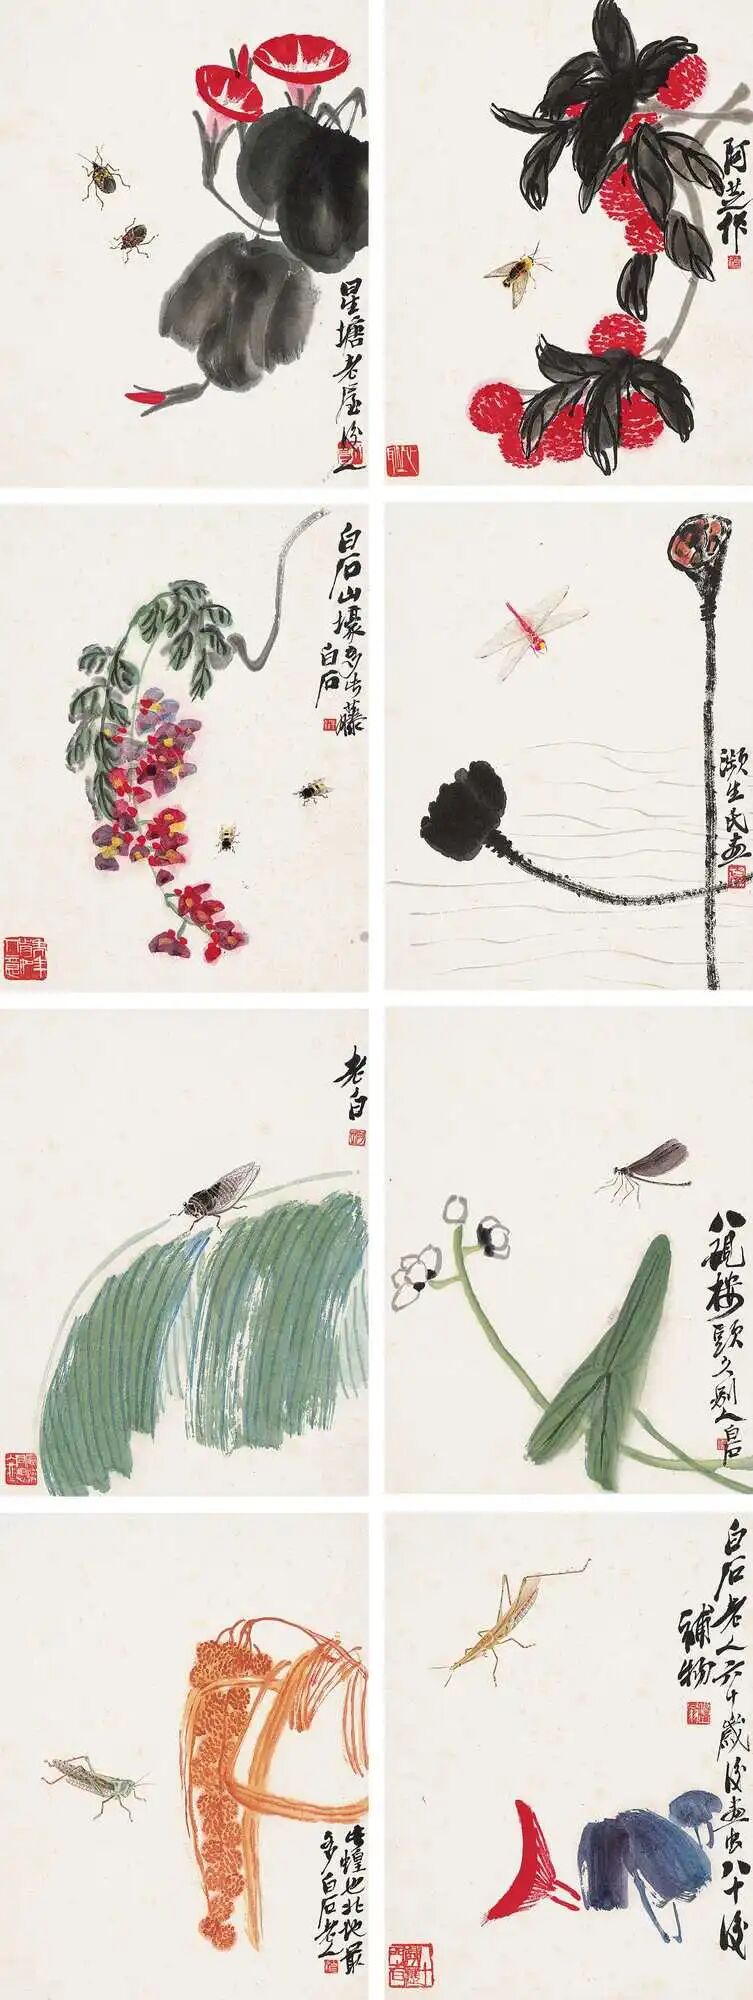 星塘老屋後人
阿芝作
白石山壕多此藤
白石
瀕生民画
老白
八硯楼頭久别人白石
此蝗也北地最
多白石老人
白石老人六十歲後画虫八十後
補物